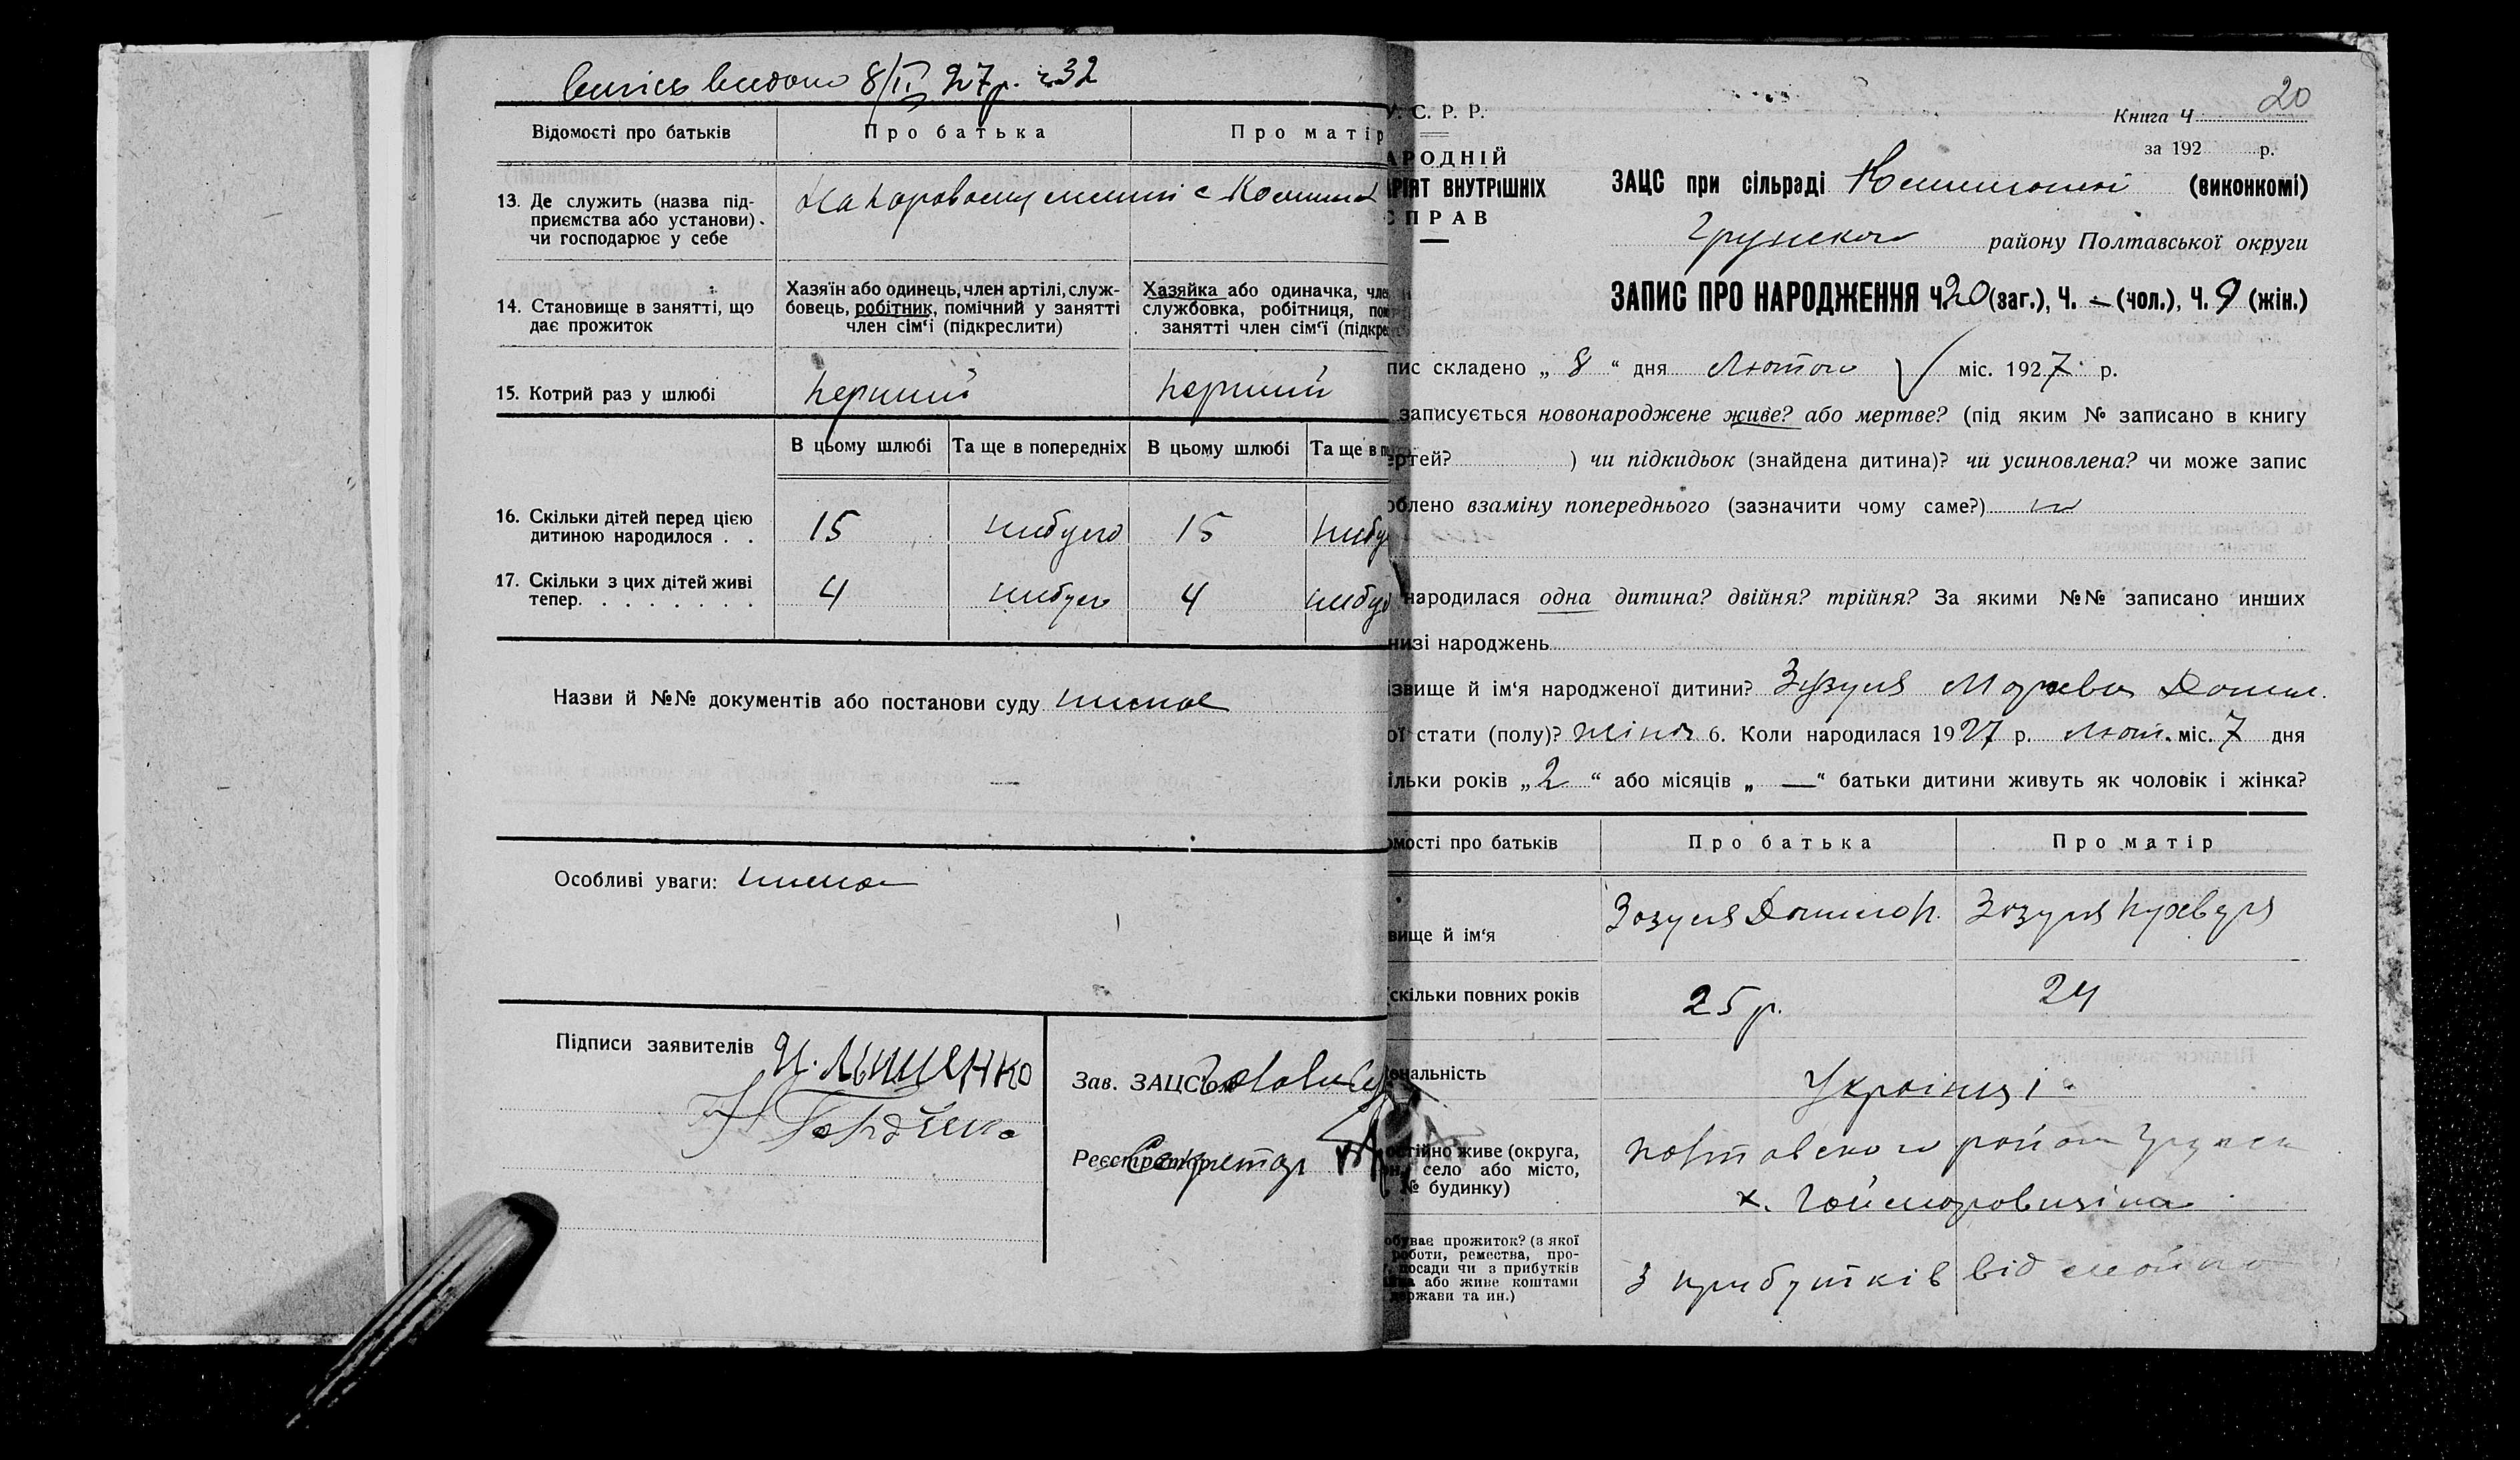 видано 8/II 27р. ч 32
Відомості про батьків
Про батька
Про матір
13. Де служить (назва під-
приємства або установи)
чи господарює у себе
14. Становище в занятті, що
дає прожиток
Хазяїн або одинець, член артілі, служ-
бовець, робітник, помічний у занятті
член сім‘ї (підкреслити)
Хазяйка або одиначка, чле
службовка, робітниця, пом
занятті член сім‘ї (підкре
15. Котрий раз у шлюбі
перший
перший
В цьому шлюбі
Та ще в попередніх
В цьому шлюбі
Та ще в п
16. Скільки дітей перед цією
дитиною народилося . .
15
небуло
15
небу
17. Скільки з цих дітей живі
тепер. . . . . . . .
4
небуло
4
небул
Назви й №№ документів або постанови суду нема
Особливі уваги: нема
Підписи заявителів
Зав. ЗАЦС‘ом
Реєстратор Секретар
У. С. Р. Р.
АРОДНІЙ
АРІЯТ ВНУТРІШНІХ
СПРАВ
20
Книга Ч.
за 192 р.
ЗАЦС при сільраді (виконкомі)
Грунского району Полтавської округи
ЗАПИС ПРО НАРОДЖЕННЯ Ч. 20 (заг.), Ч. – (чол.), Ч. 9 (жін.)
пис складено „ 8 “ дня Лютого міс. 1927 р.
записується новонароджене живе? або мертве? (під яким № записано в книгу
ертей? ) чи підкидьок (знайдена дитина)? чи усиновлена? чи може запис
облено взаміну попереднього (зазначити чому саме?) ні
народилася одна дитина? двійня? трійня? За якими №№ записано инших
низі народжень
ізвище й ім‘я народженої дитини? Зозуля
ої стати (полу)? жіноч 6. Коли народилася 1927 р. Лют. міс. 7 дня
ільки років „ 2 “ або місяців „ — “ батьки дитини живуть як чоловік і жінка?
омості про батьків
Про батька
Про матір
вище й ім‘я
Зозуля
Зозуля
скільки повних років
25 р.
24
ональність
Українці
остійно живе (округа,
он, село або місто,
№ будинку)
х.
обуває прожиток? (з якої
роботи, ремества, про-
посади чи з прибутків
або живе коштами
держави та ин.)
з прибутків від